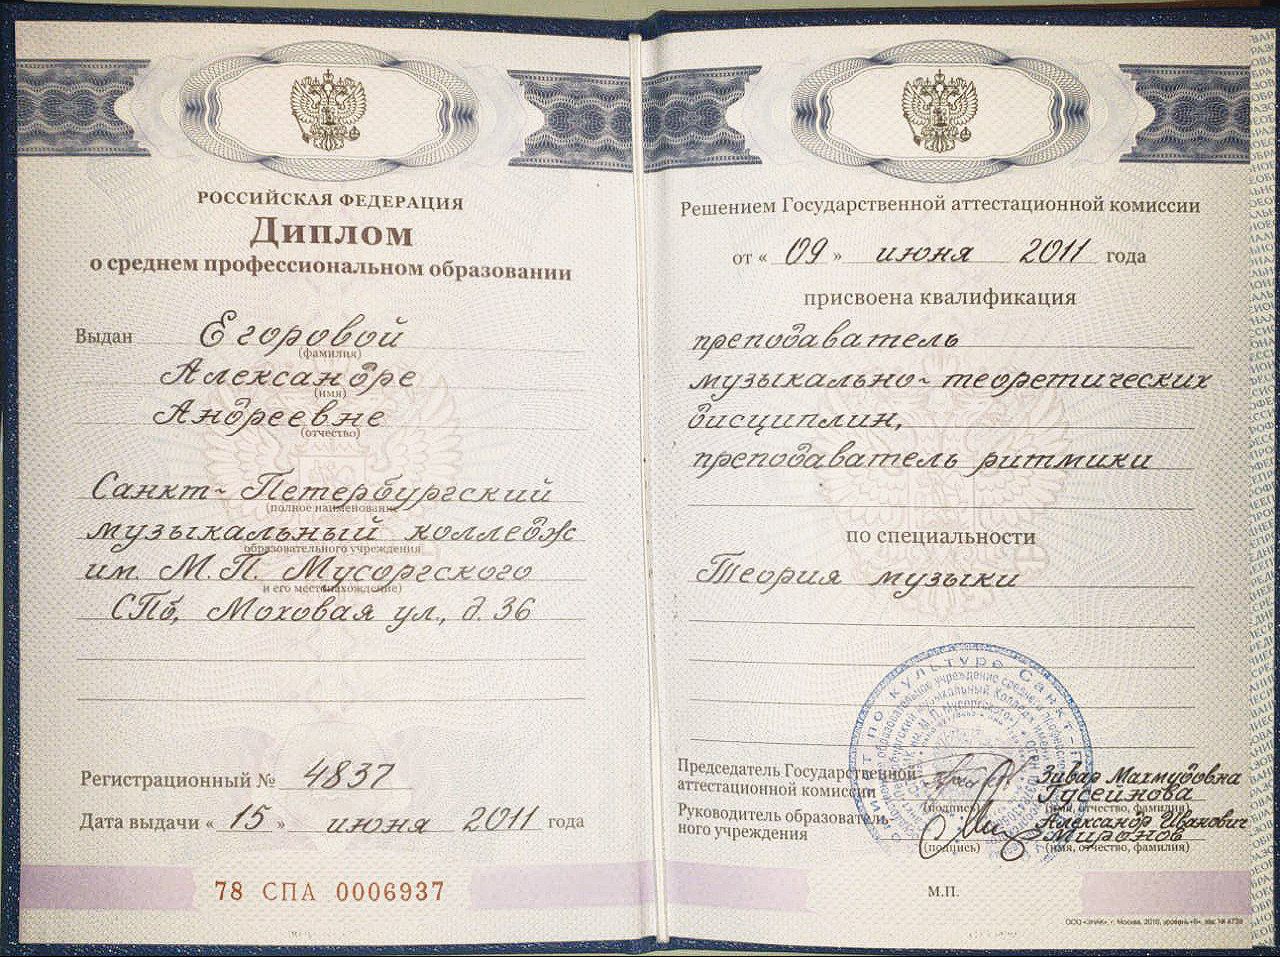 РОССИЙСКАЯ ФЕДЕРАЦИЯ
Диплом
о среднем профессиональном образовании
Выдан Егоровой
(фамилия)
Александре
(имя)
Андреевне
(отчество)
Санкт-Петербургский
(полное наименование
музыкальный колледж
образовательного учреждения
им. М.П. Мусоргского
и его местонахождение)
СПб, Моховая ул., д. 36
Регистрационный № 4837
Дата выдачи « 15 » июня 2011 года
78 СПА 0006937
Решением Государственной аттестационной комиссии
от « 09 » июня 2011 года
присвоена квалификация
преподаватель
музыкально-теоретических
дисциплин,
преподаватель ритмики
по специальности
Теория музыки
Председатель Государственной Зивар Махмудовна
аттестационной комиссии Гусейнова
(подпись) (имя, отчество, фамилия)
Руководитель образователь- Александр Иванович
ного учреждения Миронов
(подпись) (имя, отчество, фамилия)
М.П.
ООО «ЗНАК», г. Москва, 2010, уровень «Б»